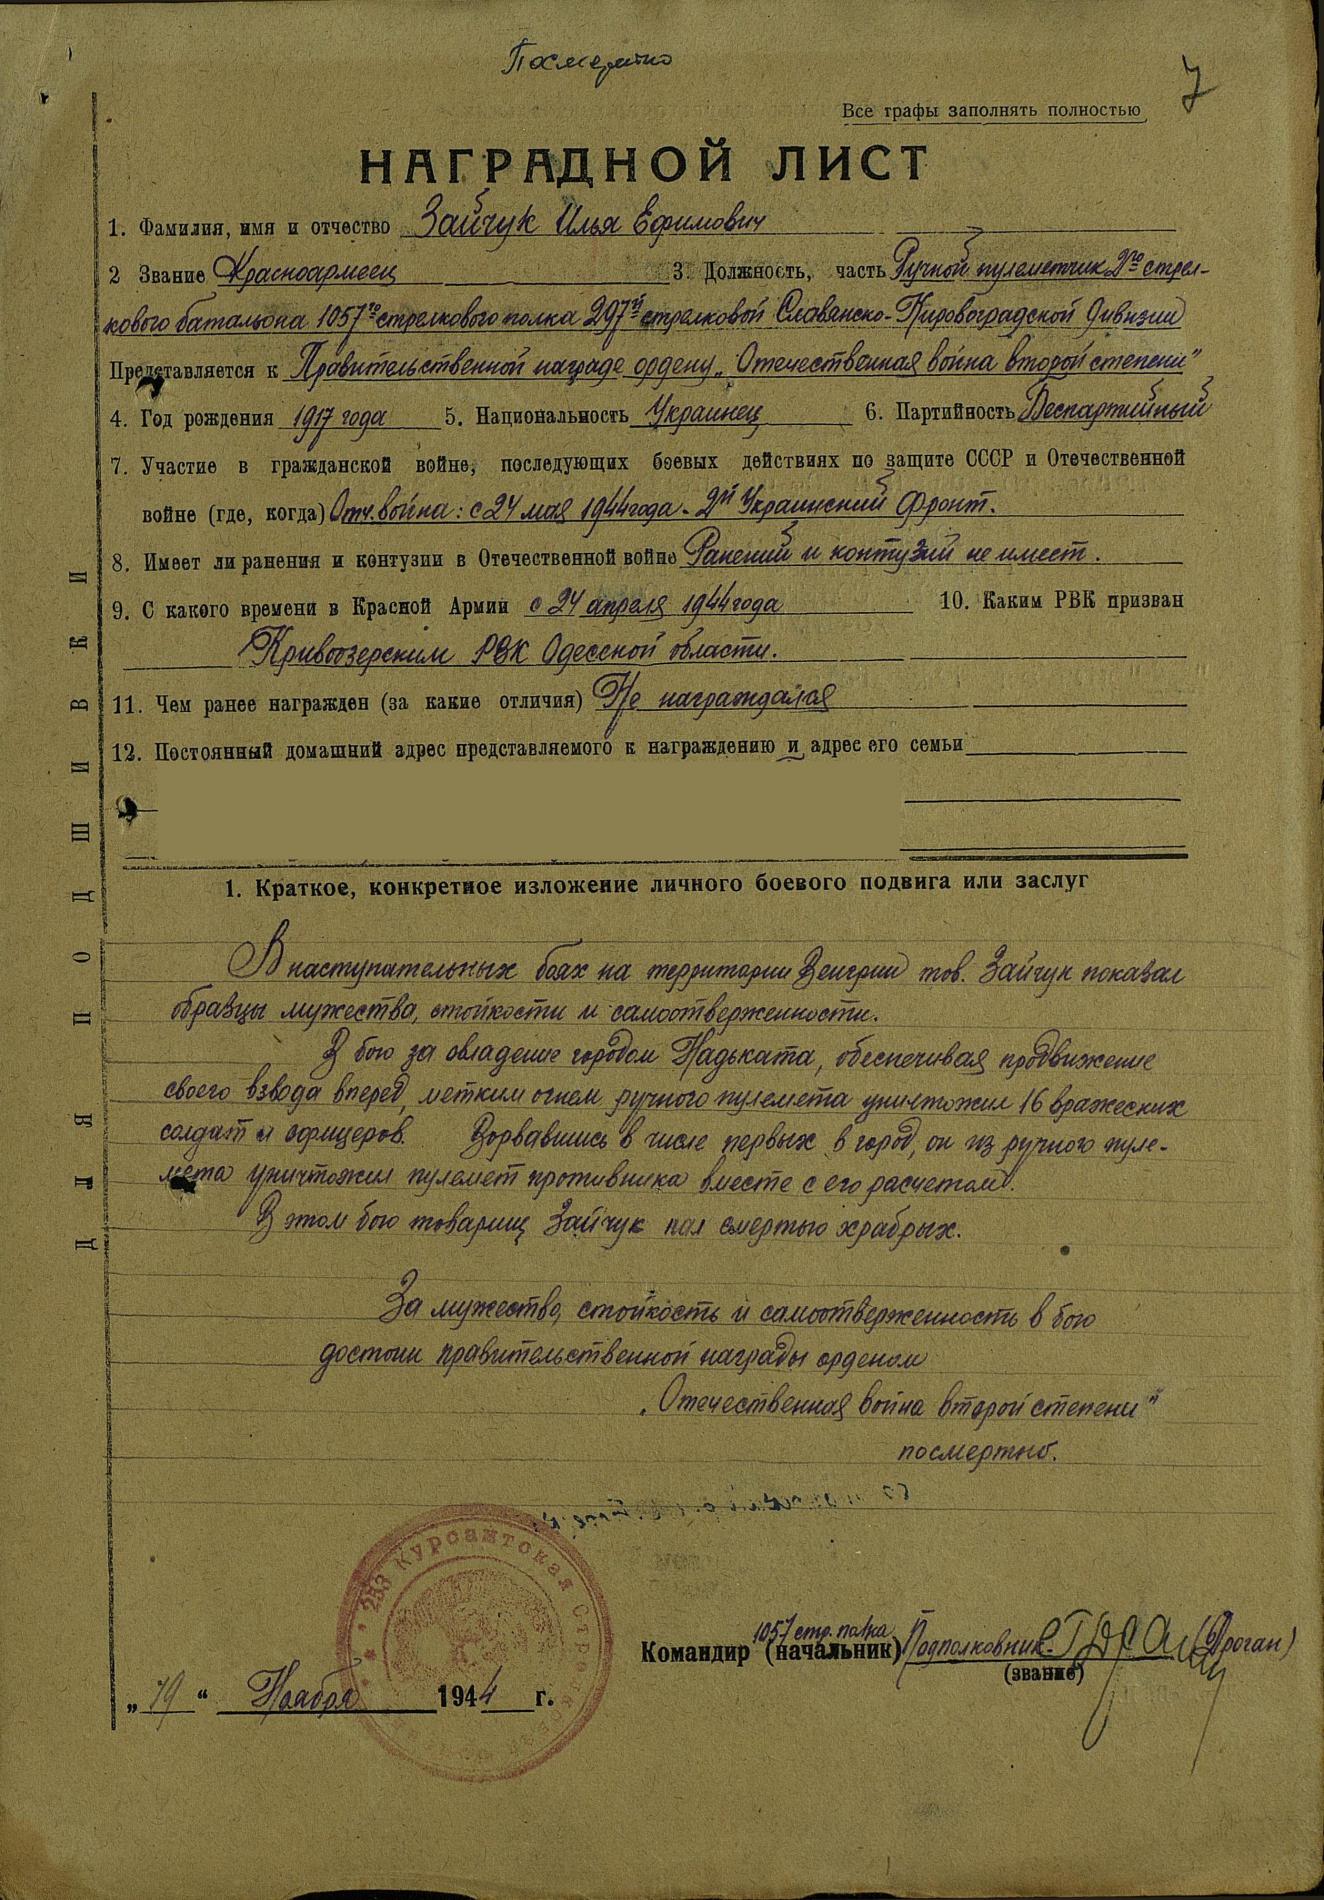 Посмертно
7
Все графы заполнять полностью
НАГРАДНОЙ ЛИСТ
1. Фамилия, имя и отчество Зайчук Илья Ефимович
2 Звание Красноармеец 3. Должность, часть Ручной пулеметчик 2го стрел-
кового батальона 1057го стрелкового полка 297й стрелковой Славянско-Кировоградской Дивизии
Представляется к Правительственной награде ордену „Отечественная война второй степени"
4. Год рождения 1917 года 5. Национальность Украинец 6. Партийность Беспартийный
7. Участие в гражданской войне, последующих боевых действиях по защите СССР и Отечественной
войне (где, когда) Отч. война: с 24 мая 1944 года - 2й Украинский Фронт.
8. Имеет ли ранения и контузии в Отечественной войне Ранений и контузий не имеет.
9. С какого времени в Красной Армии с 24 апреля 1944 года 10. Каким РВК призван
Кривоозерским РВК Одесской области.
11. Чем ранее награжден (за какие отличия) Не награждался
12. Постоянный домашний адрес представляемого к награждению и адрес его семьи
ДЛЯ ПОДШИВКИ
1. Краткое, конкретное изложение личного боевого подвига или заслуг
В наступательных боях на территории Венгрии тов. Зайчук показал
образцы мужества, стойкости и самоотверженности.
В бою за овладение городом Надьката, обеспечивая продвижение
своего взвода вперед, метким огнем ручного пулемета уничтожил 16 вражеских
солдат и офицеров. Ворвавшись в числе первых в город, он из ручного пуле-
мета уничтожил пулемет противника вместе с его расчетом.
В этом бою товарищ Зайчук пал смертью храбрых.
За мужество, стойкость и самоотверженность в бою
достоин правительственной награды орденом
„Отечественная война второй степени"
посмертно.
253 Курсантская Стрелковая
1057 стр. полка
Командир (начальник) Подполковник (Дроган)
(звание)
„19" Ноября 1944 г.